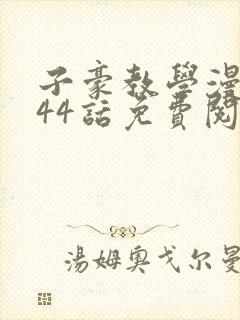 子豪教學漫
44話免費閱
湯姆奧戈尔曼